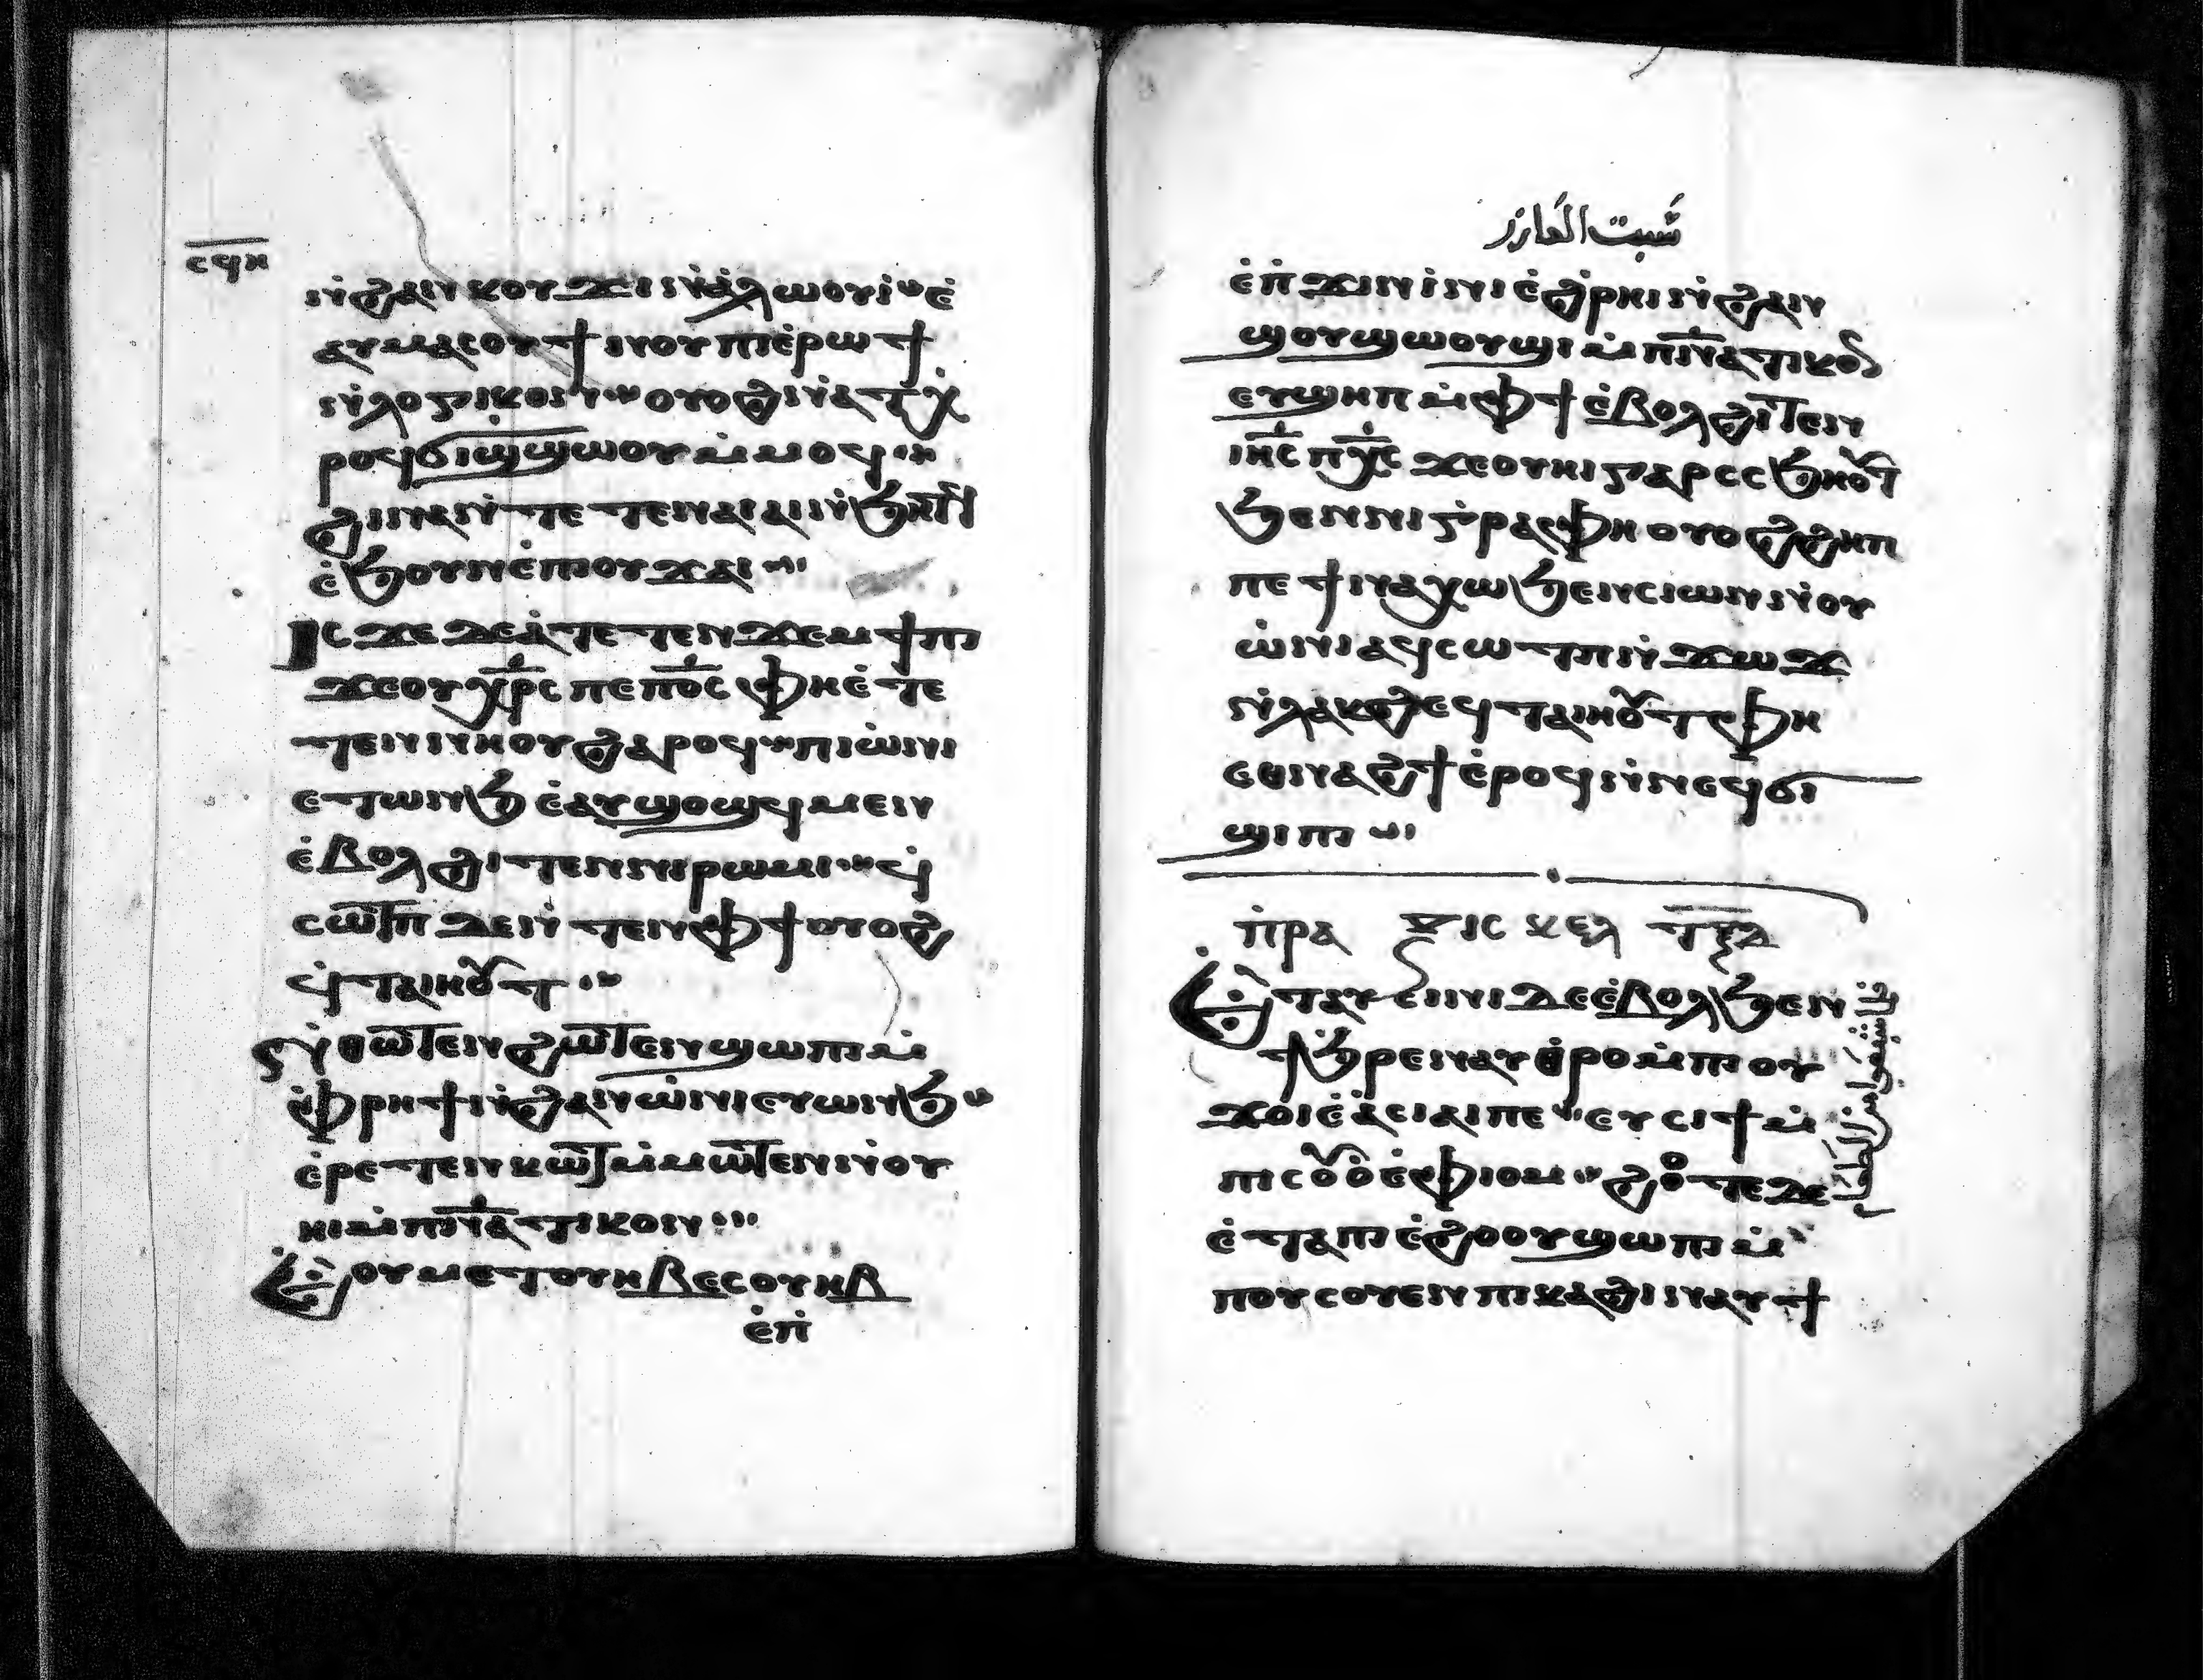 ⲥϥⲏ
ⲛ̇ϩⲁⲛⲕⲟⲩϫⲓ ⲛ̇ⲁ̇ⲗⲱⲟⲩⲓ̇ ⲉ̇
ⲁⲩⲙⲁⲥⲟⲩ ϯⲛⲟⲩ ⲡⲓⲉ̇ⲣⲱϯ
ⲛ̇ⲗⲟⲅⲓⲕⲟⲛ ⲟⲩⲟϩ ⲛ̇ⲁⲧⲭ̇
ⲣⲟϥ ϭⲓϣ̇ϣⲱⲟⲩ ⲙ̇ⲙⲟϥ
ϩⲓⲛⲁ ⲛ̇ⲧⲉⲧⲉⲛⲁⲓⲁⲓ ⲛ̇ϧⲏⲧϥ
ⲉ̇ϧⲟⲩⲛ ⲉ̇ⲡⲓⲟⲩϫⲁⲓ
ⲓⲥϫⲉ ⲇⲉ ⲁ̇ⲧⲉⲧⲉⲛϫⲉⲙϯⲡⲓ
ϫⲉ ⲟⲩⲭ̅ⲣ̅ⲥ ⲡⲉ ⲡ̅ⲟ̅ⲥ ⲫⲏ ⲉ̇ⲧⲉ
ⲧⲉⲛⲛⲏⲟⲩ ϩⲁⲣⲟϥ ⲡⲓⲱ̇ⲛⲓ
ⲉⲧⲱⲛϧ ⲉ̇ⲁⲩϣⲟϣϥ ⲙⲉⲛ
ⲉ̇ⲃⲟⲗ ϩⲓⲧⲉⲛ ⲛⲓⲣⲱⲙⲓ ϥ̇
ⲥⲱⲧⲡ ⲇⲉ ⲛ̇ⲧⲉⲛ ⲫϯ ⲟⲩⲟϩ
ϥ̇ⲧⲁⲓⲏⲟⲩⲧ
ⲛ̇ⲑⲱⲧⲉⲛ ϩⲱⲧⲉⲛ ϣⲱⲡⲓ ⲙ̇
ⲫ̇ⲣⲏϯ ⲛ̇ϩⲁⲛⲱ̇ⲛⲓ ⲉⲩⲱⲛϧ
ⲉ̇ⲣⲉⲧⲉⲛⲕⲱⲧ ⲙ̇ⲙⲱⲧⲉⲛ ⲛ̇ⲟⲩ
ⲏⲓ ⲙ̇ⲡⲛ̅ⲁ̅ⲧⲓⲕⲟⲛ
ⲉ̇ⲟⲩⲙⲉⲧⲟⲩⲏⲃ ⲉⲥⲟⲩⲏⲃ
ⲉ̇ⲡ̇
سَبت العازر
ⲉ̇ⲡ̇ϫⲓⲛⲓ̇ⲛⲓ ⲉ̇ϩⲣⲏⲓ ⲛ̇ϩⲁⲛ
ϣⲟⲩϣⲱⲟⲩϣⲓ ⲙ̇ⲡⲛ̅ⲁ̅ⲧⲓⲕⲟⲛ
ⲉⲩϣⲏⲡ ⲙ̇ⲫϯ ⲉ̇ⲃⲟⲗ ϩⲓⲧⲉⲛ
ⲓⲏ̅ⲥ ⲡⲭ̅ⲥ ϫⲉ ⲟⲩⲏⲓ ⲅⲁⲣ ⲥⲥϧⲏⲟⲩⲧ
ϧⲉⲛ ⲛⲓⲅ̇ⲣⲁⲫⲏ ⲟⲩⲟϩ ϩⲏⲡ
ⲡⲉ ϯⲛⲁⲭⲱ ϧⲉⲛ ⲥⲓⲱⲛ ⲛ̇ⲟⲩ
ⲱ̇ⲛⲓ ⲁϥⲥⲱⲧⲡ ⲛ̇ϫⲱϫ
ⲛ̇ⲗⲁⲕϩ ⲉϥⲧⲁⲓⲏⲟⲩⲧ ⲫⲏ
ⲉⲑⲛⲁϩϯ ⲉ̇ⲣⲟϥ ⲛ̇ⲛⲉϥϭⲓ
ϣⲓⲡⲓ
ⲡ̇ⲣⲁⲝⲓⲥ ⲕⲉⲗ
ⲉ̇ⲧⲁⲩⲉ̇ⲛⲓ ⲇⲉ ⲉ̇ⲃⲟⲗ ϧⲉⲛ
ϯϧ̇ⲣⲉ ⲛⲁⲩⲑⲣⲟ ⲙ̇ⲡⲓⲟⲩ
ϫⲟⲓ ⲉ̇ⲁ̇ⲥⲓⲁⲓ ⲡⲉ ⲉⲩⲥⲓϯ ⲙ̇
ⲡⲓⲥⲟⲩⲟ̇ ⲉ̇ⲫⲓⲟⲙ ϩⲟⲧⲉ ⲇⲉ
ⲉ̇ⲧⲁ ⲡⲓⲉ̇ϩⲟⲟⲩ ϣⲱⲡⲓ ⲙ̇
ⲡⲟⲩⲥⲟⲩⲉⲛ ⲡⲓⲕⲁϩⲓ ⲛⲁⲩϯ
فلما شبعوا من الطعام